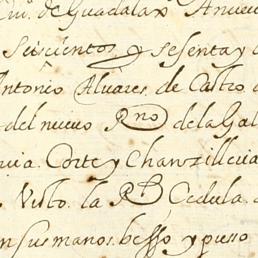 de Guadalax A nueve
Seiscientos y sesenta y
Antonio Aluares de Castro
del nueuo R.no de la Gal
Corte y Chanzilleria
Visto la Rl Cedula
sus manos besso y pusso